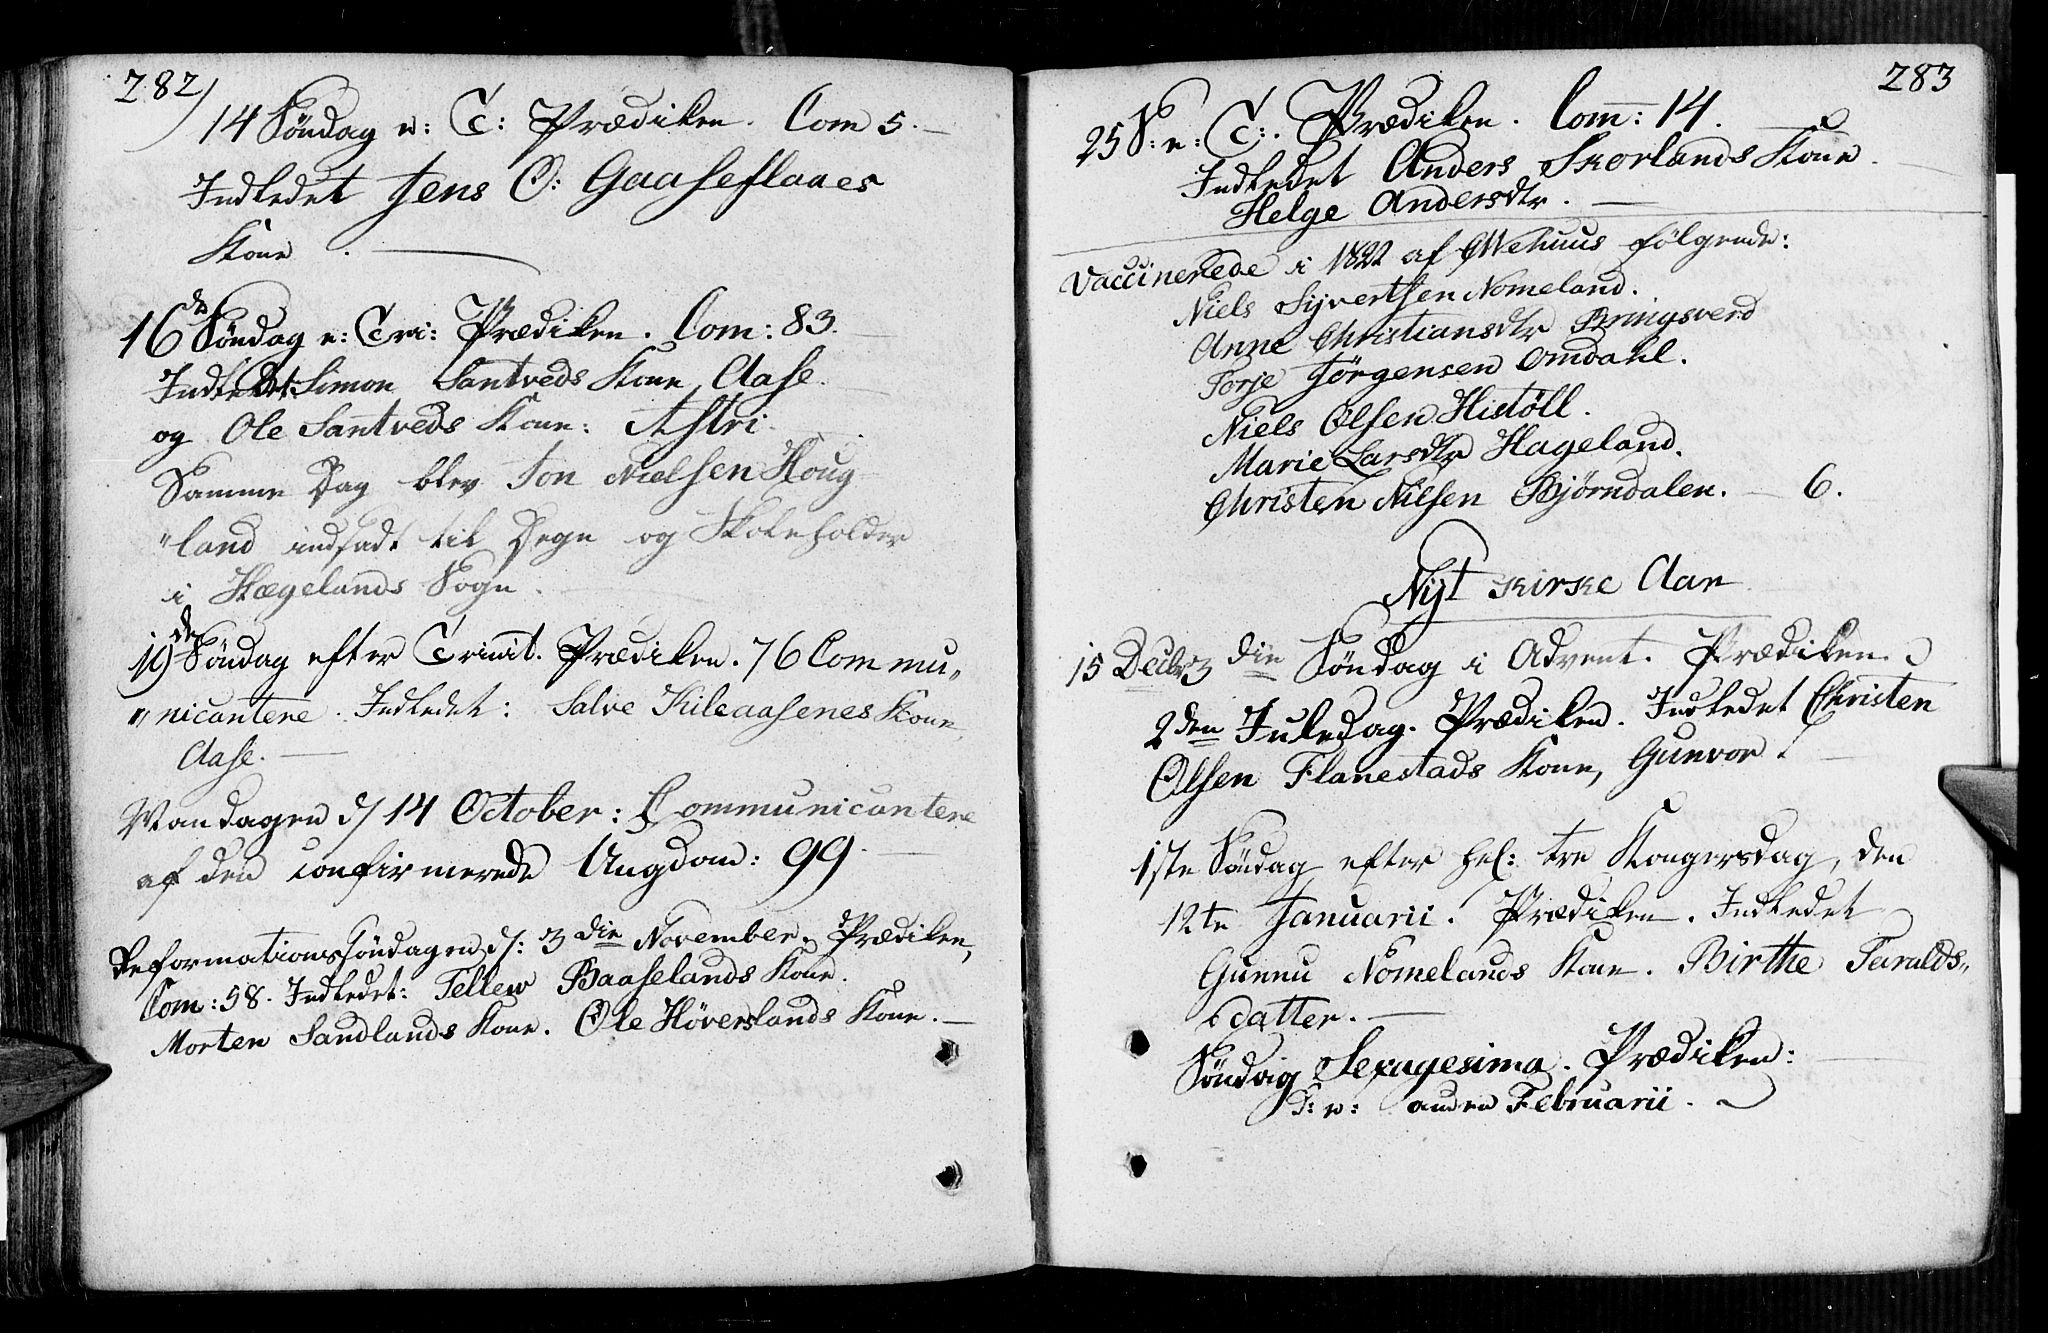 282)
14 Søndag e: T: Prædiken. Com 5.
Indledet Jens O: Gaaseflaaes
Kone.
16de Søndag e: Tri: Prædiken. Com: 83.
Indledet: Simon Santveds Kone, Aase.
og Ole Santveds Kone: Astri.
Samme Dag blev Jon Nielsen Houg-
"land indsadt til Degn og Skoleholder
i Hægelands Sogn.
19de Søndag efter Trinit. Prædiken. 76 Commu„
"nicantere. Indledet: Salve Kileaasenes Kone,
Aase.
Mandagen d/ 14 October: Communicantere
af den confirmerede Ungdom: 99.
Reformationssøndagen d/: 3die November. Prædiken,
Com: 58. Indledet: Tellew Baaselands Kone.
Morten Sandlands Kone. Ole Höverslands Kone.
283
25 S: e: T:. Prædiken. Com: 14.
Indledet Anders Skorlands Kone
Helge Andersdtr.
Vaccinerede i 1822 af Wehuus følgende:
Niels Sijvertsen Nomeland.
Anne Christiansdtr Bringsverd
Torje Jörgensen Omdahl.
Niels Olsen Histöll.
Marie Larsdtr Hageland.
Christen Nilsen Bjørndalen. - 6.
Nyt Kirke Aar
15 Decbr 3die Søndag i Advent. Prædiken.
2den Juledag. Prædiken. Indledet Christen
Olsen Flanestads Kone, Gunvor.
1ste Søndag efter hel: tre Kongersdag, den
12te Januarii. Prædiken. Indledet
Gunnu Nomelands Kone. Birthe Taralds„
datter.
Søndag Sexagesima. Prædiken:
D: e: anden Februarii.